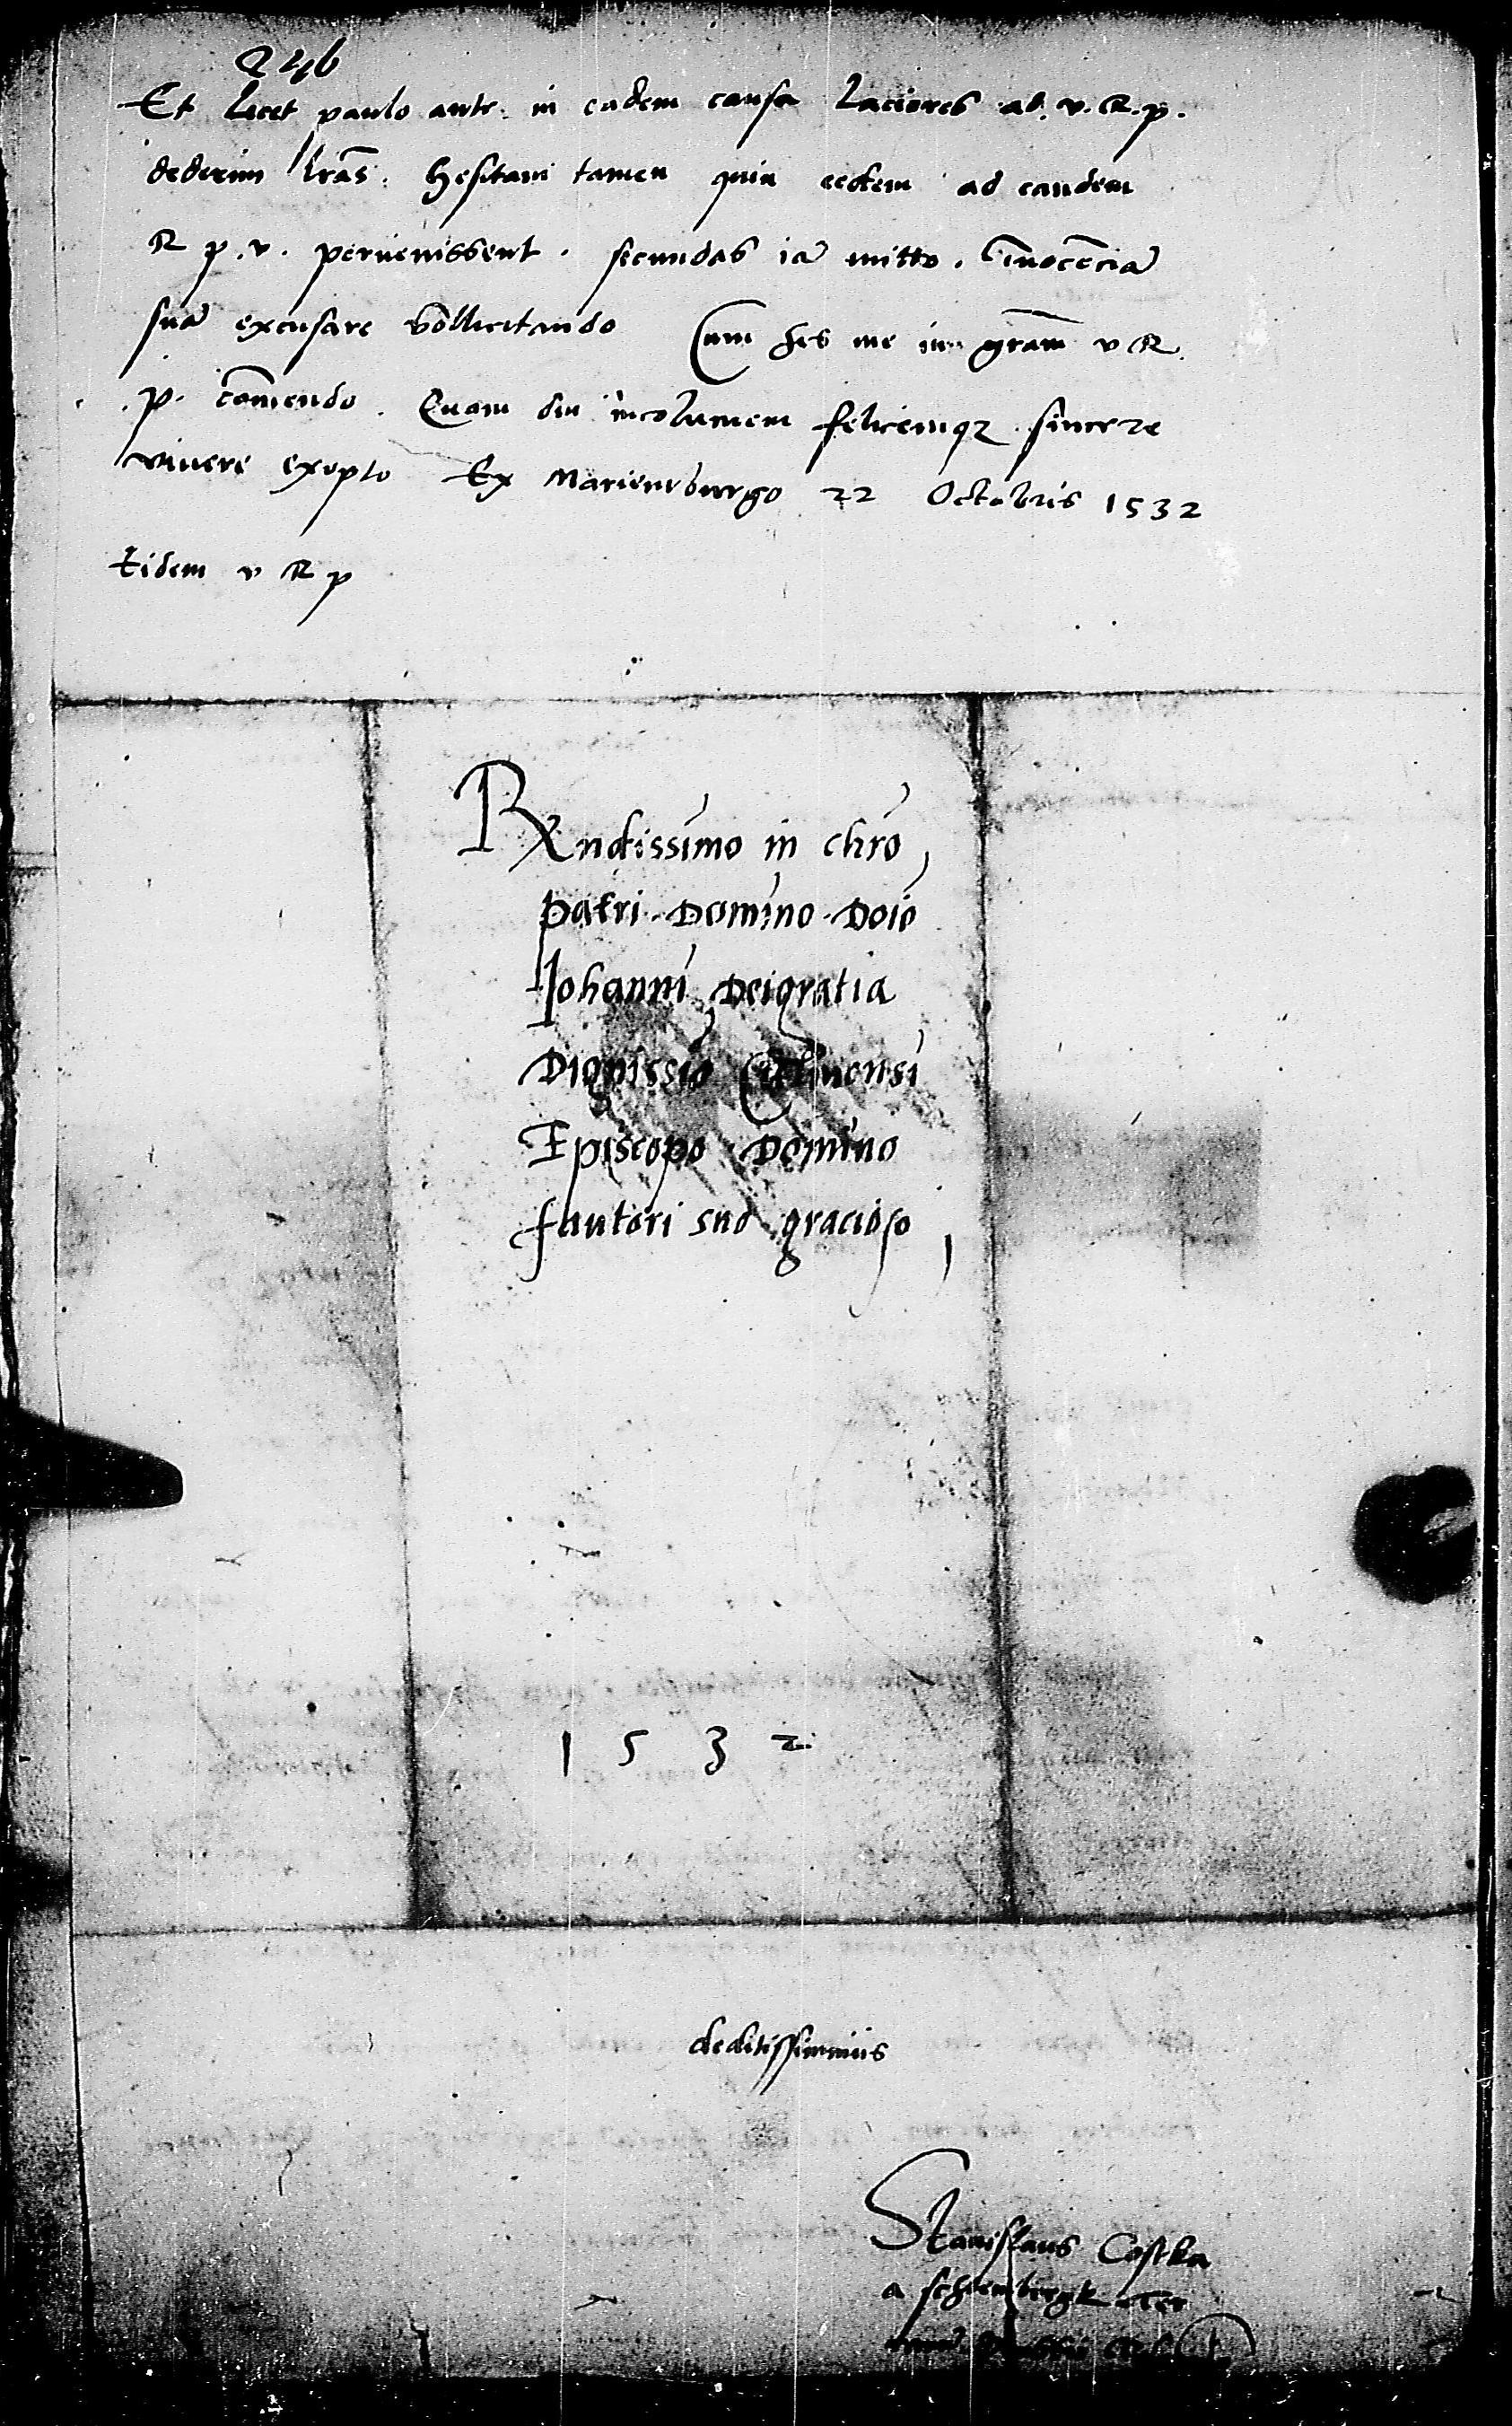 246
Et licet paulo ante in eadem causa laciores ad. v. R. p.
dederim lras. hesitavi tamen quin eedem ad eandem
R p. v. pervenissent. secundas ia mitto. innocencia
sua excusare sollicitando Cum his me in gram v R.
p. comendo. Quam diu incolumem felicemqz sincere
vivere exopto Ex Marienburgo 22 Octobris 1532
Eidem v R p
Rxndissimo in chro
patri Domino Doio
Johanni Dei gratia
Dignissio Culmensi
Episcopo Domino
fautori suo gracioso
1532
deditissimus
Stanislaus Costka
a Schtembergk Ter